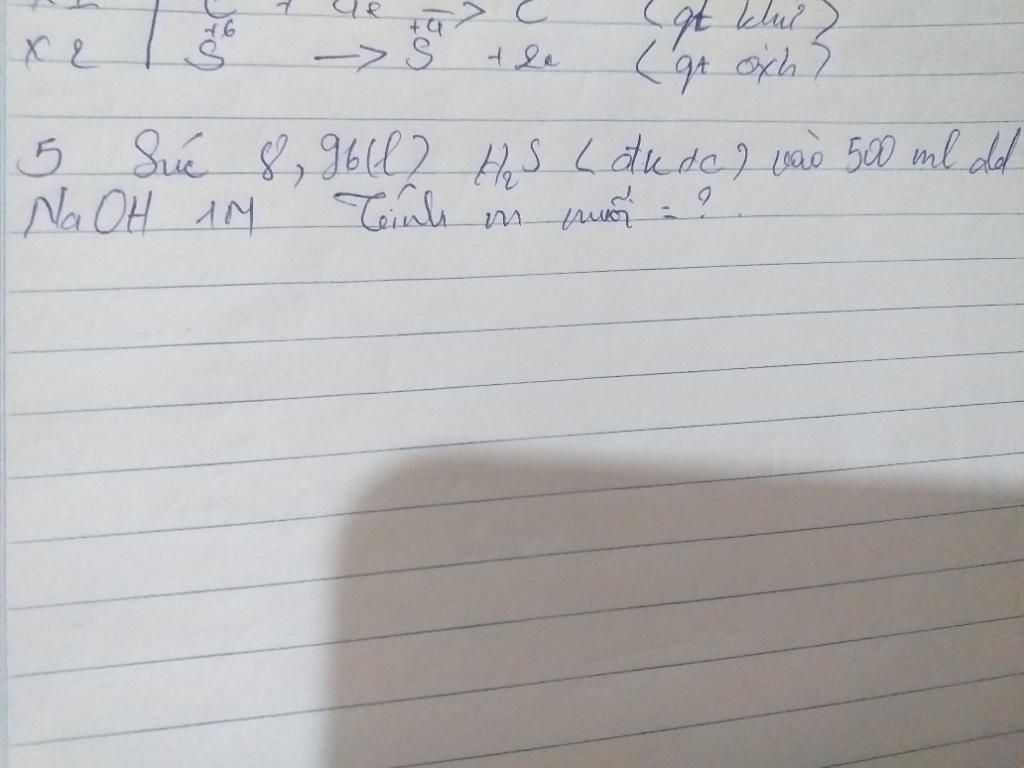 C + 4e -> C (qt khử)
x 2 | S+6 -> S+4 + 2e (qt oxh)
5 Sục 8,96(l) H2S (đktc) vào 500 ml dd
NaOH 1M Tính m muối = ?